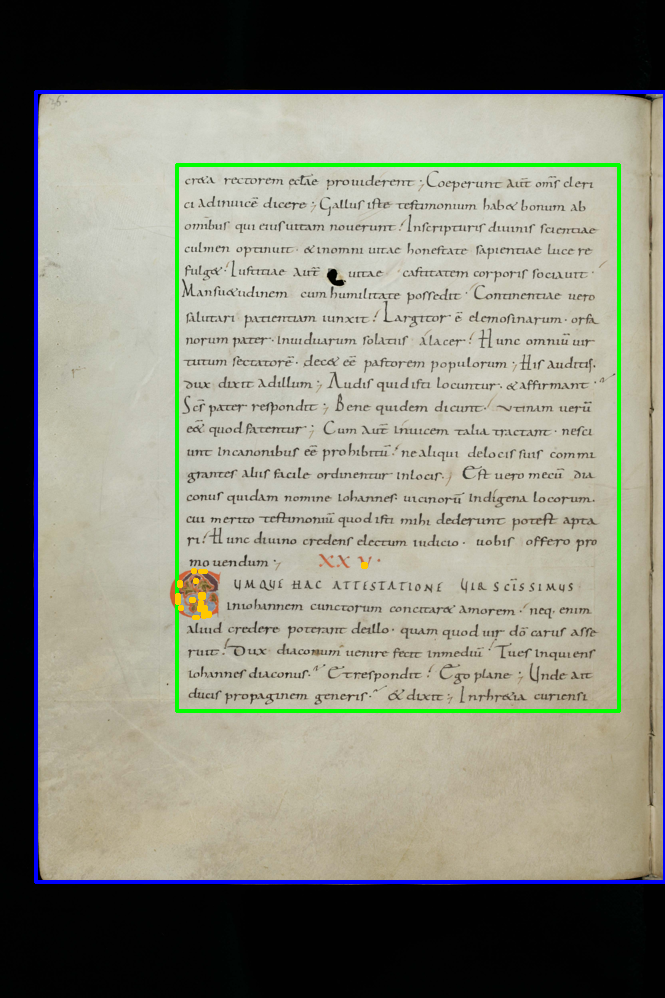 creꝫa rectorem ecl̃ae prouiderent ;, Coeperunt aut̃ oms̃ cleri
ci adinuicẽ dicere ;, Gallus iste testimonium hab& bonum ab
omnibus qui eius uitam nouerunt ! Inscripturis diuinis scientiae
culmen optinuit · & inomni uitae honestate sapientiae luce re
fulg& ! Iustitiae aut̃ uitae castitatem corporis sociauit ·
Mansu&udinem cum humilitate possedit · Continentiae uero
salutari patientiam iunxit ! Largitor ẽ elemosinarum · orfa
norum pater · uiduarum solatius alacer ! Hunc omniũ uir
tutum sectatorẽ · dec& eẽ pastorem populorum ;, His auditis ·
dux dixit adillum ;, Audis quid isti locuntur · & affirmant ·
Scs̃ pater respondit ;, Bene quidem dicunt · utinam uerũ
e&& quod fatentur ;, Cum aut̃ inuicem talia tractant · nesci
unt incanonibus eẽ prohibitũ ! ne aliqui delocis suis commi
grantes aliis facile ordinentur inlocis ;, Est uero mecũ dia
conus quidam nomine iohannes · uicinorũ indigena locorum ·
cui merito testimoniũ quod isti mihi dederunt potest apta
ri ! Hunc diuino credens electum iudicio · uobis offero pro
mouendum ;,  XXV ·
CUMQUE HAC ATTESTATIONE UIR SCISSIMUS
iniohannem cunctorum concitar& amorem · neq · enim
aliud credere poterant deillo · quam quod uir dõ carus asse
ruit ! Dux diaconum uenire fecit inmediũ ! Tu es inquiens
iohannes diaconus · Et respondit ! Ego plane ;, Unde ait
ducis propaginem generis · & dixit ;, Inrh&ia curiensi